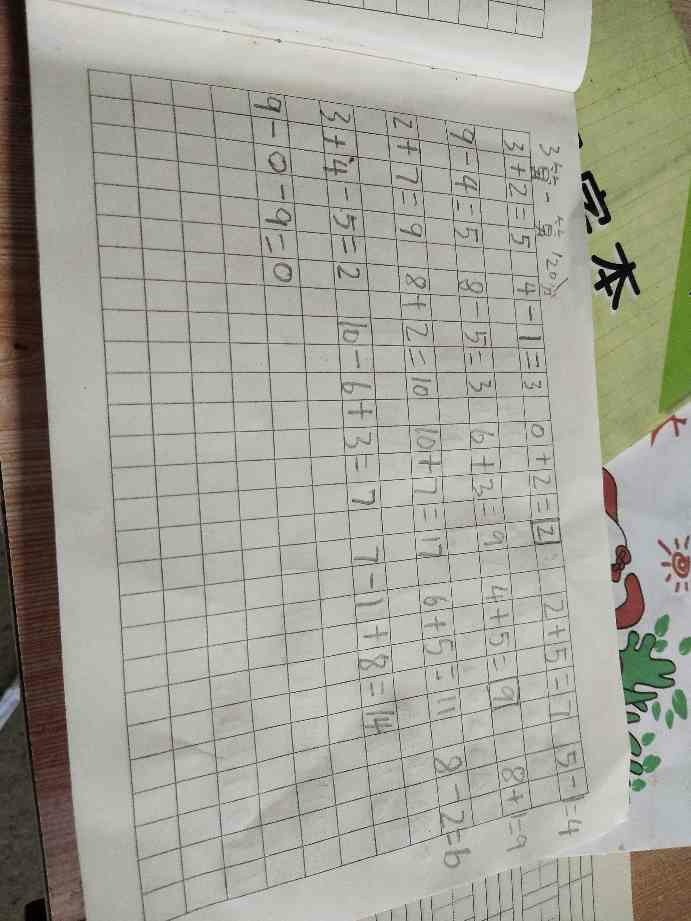 3+2=5 4-1=3 0+2=2 2+5=7 5-1=4
9-4=5 8-5=3 6+3=9 4+5=9 8+1=9
2+7=9 8+2=10 10+7=17 6+5=11 8-2=6
3+4-5=2 10-6+3=7 7-1+8=14
9-0-9=0
本